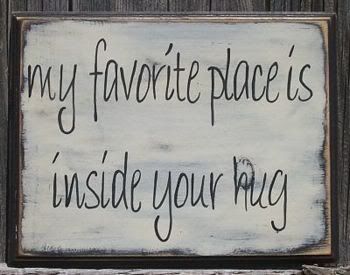 my favorite place is
inside your hug